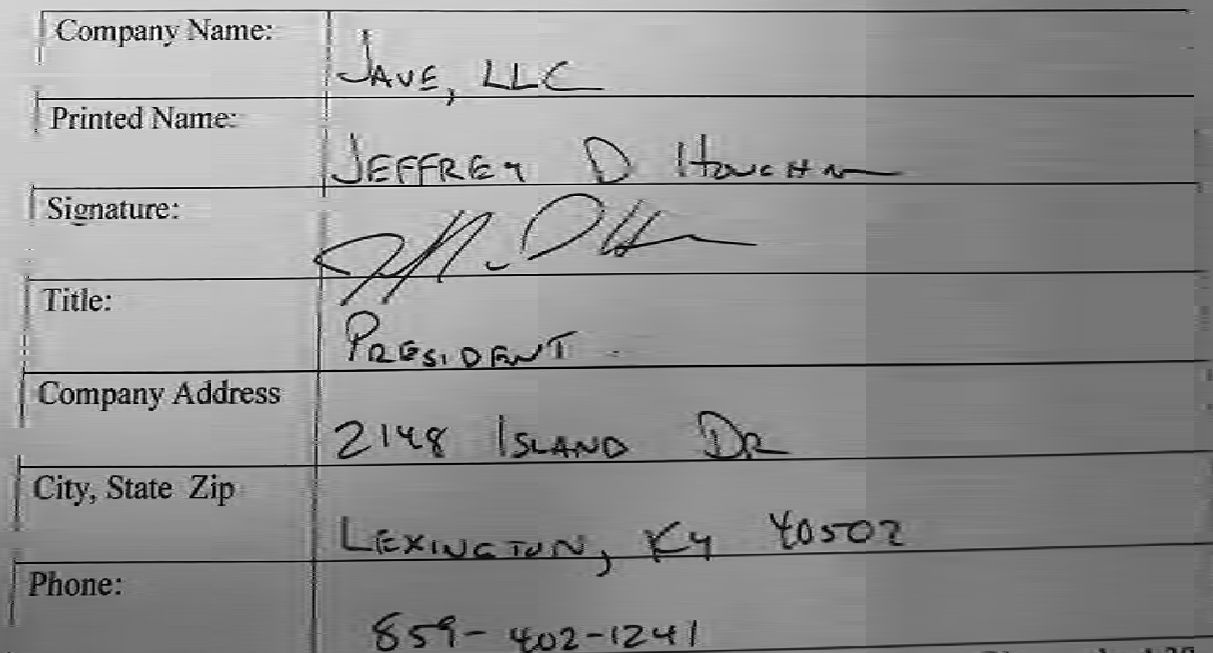 Company Name: JAVE, LLC
Printed Name: JEFFREY D
Signature:
Title: PRESIDENT
Company Address 2148 ISLAND DR
City, State Zip LEXINGTON, KY 40502
Phone: 859-402-1241